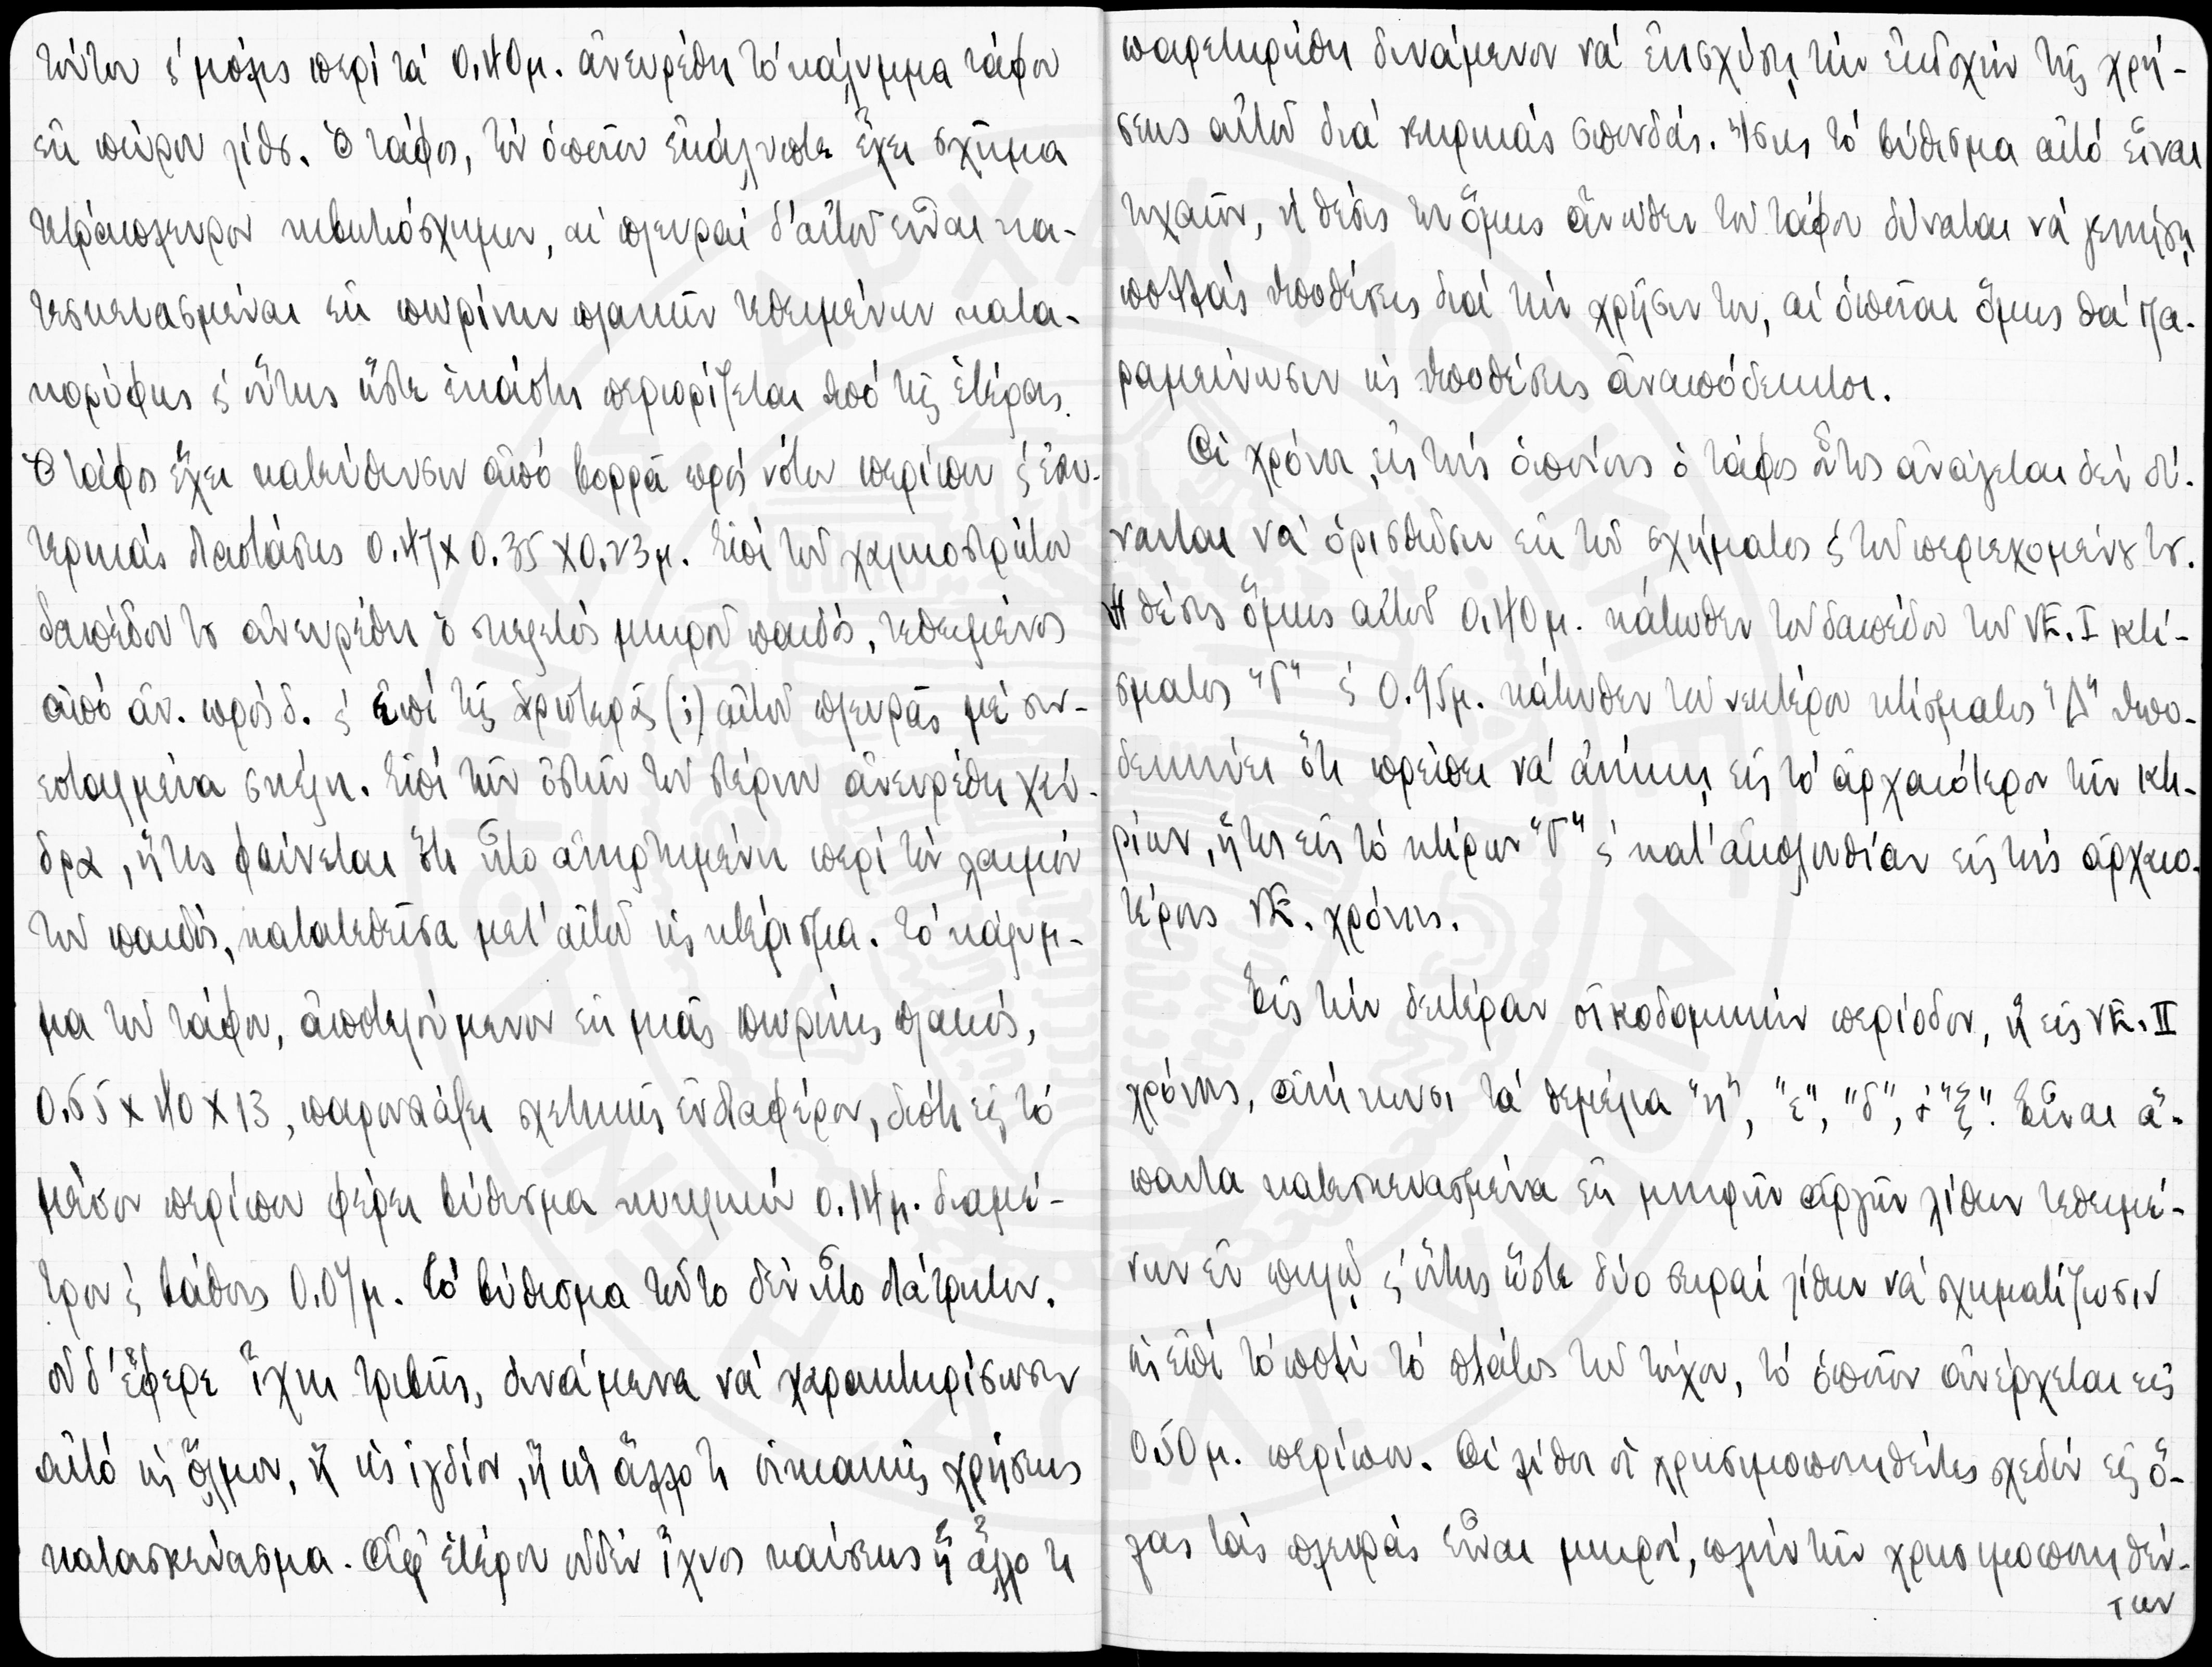 τούτου ϛ μόλις περί τά 0,40μ. ἀνευρέθη τό κάλυμμα τάφου
ἐκ πώρου λίθου. Ὁ τάφος, τόν ὁποῖον ἐκάλυπτε ἔχει σχῆμα
τετράπλευρον κιβωτιόσχημον, αἱ πλευραί δ' αὐτοῦ εἶναι κα-
τεσκευασμέναι ἐκ πωρίνων πλακῶν τεθειμένων κατα-
κορύφως ϛ οὕτως ὥστε ἑκάστη περιορίζεται ὑπό τῆς ἑτέρας.
Ὁ τάφος ἔχει κατεύθυνσιν ἀπό βορρᾶ πρός νότον περίπου ϛ ἐσω-
τερικάς διαστάσεις 0.47 x 0.35 x 0.23μ. Ἐπί τοῦ χαλικοστρώτου
δαπέδου του ἀνευρέθη ὁ σκελετός μικροῦ παιδός, τεθειμένος
ἀπό ἀν. πρός δ. ϛ ἐπί τῆς ἀριστερᾶς (;) αὐτοῦ πλευρᾶς μέ συν-
εσταλμένα σκέλη. Ἐπί τῶν ὀστῶν τοῦ στέρνου ἀνευρέθη χάν-
δρα, ἥτις φαίνεται ὅτι ἦτο ἀνηρτημένη περί τόν λαιμόν
τοῦ παιδός, κατατεθεῖσα μετ' αὐτοῦ ὡς κτέρισμα. Τό κάλυμ-
μα τοῦ τάφου, ἀποτελούμενον ἐκ μιᾶς πωρίνης πλακός,
0.65 x 40 x 13, παρουσιάζει σχετικῶς ἐνδιαφέρον, διότι εἰς τό
μέσον περίπου φέρει βύθισμα κυκλικόν 0.14μ. διαμέ-
τρου ϛ βάθους 0.07μ. Τό βύθισμα τοῦτο δέν ἦτο διάτρητον.
οὐδ' ἔφερε ἴχνη τριβῆς, δυνάμενα νά χαρακτηρίσωσιν
αὐτό ὡς ὅλμον, ἤ ὡς ἰγδίον, ἤ ὡς ἄλλο τι οἰκιακῆς χρήσεως
κατασκεύασμα. Ἀφ' ἑτέρου οὐδέν ἴχνος καύσεως ἤ ἄλλο τι
παρετηρήθη δυνάμενον νά ἐνισχύσῃ τήν ἐκδοχήν τῆς χρή-
σεως αὐτοῦ διά νεκρικάς σπονδάς. Ἴσως τό βύθισμα αὐτό εἶναι
τυχαῖον, ἡ θέσις του ὅμως ἄνωθεν τοῦ τάφου δύναται νά γεννήσῃ
πολλάς ὑποθέσεις διά τήν χρῆσιν του, αἱ ὁποῖαι ὅμως θά πα-
ραμείνωσιν ὡς ὑποθέσεις ἀναπόδεικτοι.
Οἱ χρόνοι, εἰς τούς ὁποίους ὁ τάφος οὗτος ἀνάγεται δέν δύ-
νανται νά ὁρισθῶσιν ἐκ τοῦ σχήματος ϛ τοῦ περιεχομένου του.
Ἡ θέσις ὅμως αὐτοῦ 0.40μ. κάτωθεν τοῦ δαπέδου τοῦ ΥΕ. I κτί-
σματος "Γ" ϛ 0.95μ. κάτωθεν τοῦ νεωτέρου κτίσματος "Δ" ὑπο-
δεικνύει ὅτι πρέπει νά ἀνήκῃ εἰς τό ἀρχαιότερον τῶν κτι-
ρίων, ἤτοι εἰς τό κτίριον "Γ" ϛ κατ' ἀκολουθίαν εἰς τούς ἀρχαιο-
τέρους ΥΕ. χρόνους.
Εἰς τήν δευτέραν οἰκοδομικήν περίοδον, ἤ εἰς ΥΕ. II
χρόνους, ἀνήκουσι τά θεμέλια "η", "ε", "δ", ϛ "ξ". Εἶναι ἅ-
παντα κατεσκευασμένα ἐκ μικρῶν ἀργῶν λίθων τεθειμέ-
νων ἐν πηλῷ ϛ οὕτως ὥστε δύο σειραί λίθων νά σχηματίζωσιν
ὡς ἐπί τό πολύ τό πλάτος τοῦ τοίχου, τό ὁποῖον ἀνέρχεται εἰς
0.50μ. περίπου. Οἱ λίθοι οἱ χρησιμοποιηθέντες σχεδόν εἰς ὅ-
λας τάς πλευράς εἶναι μικροί, πλήν τῶν χρησιμοποιηθέν-
των